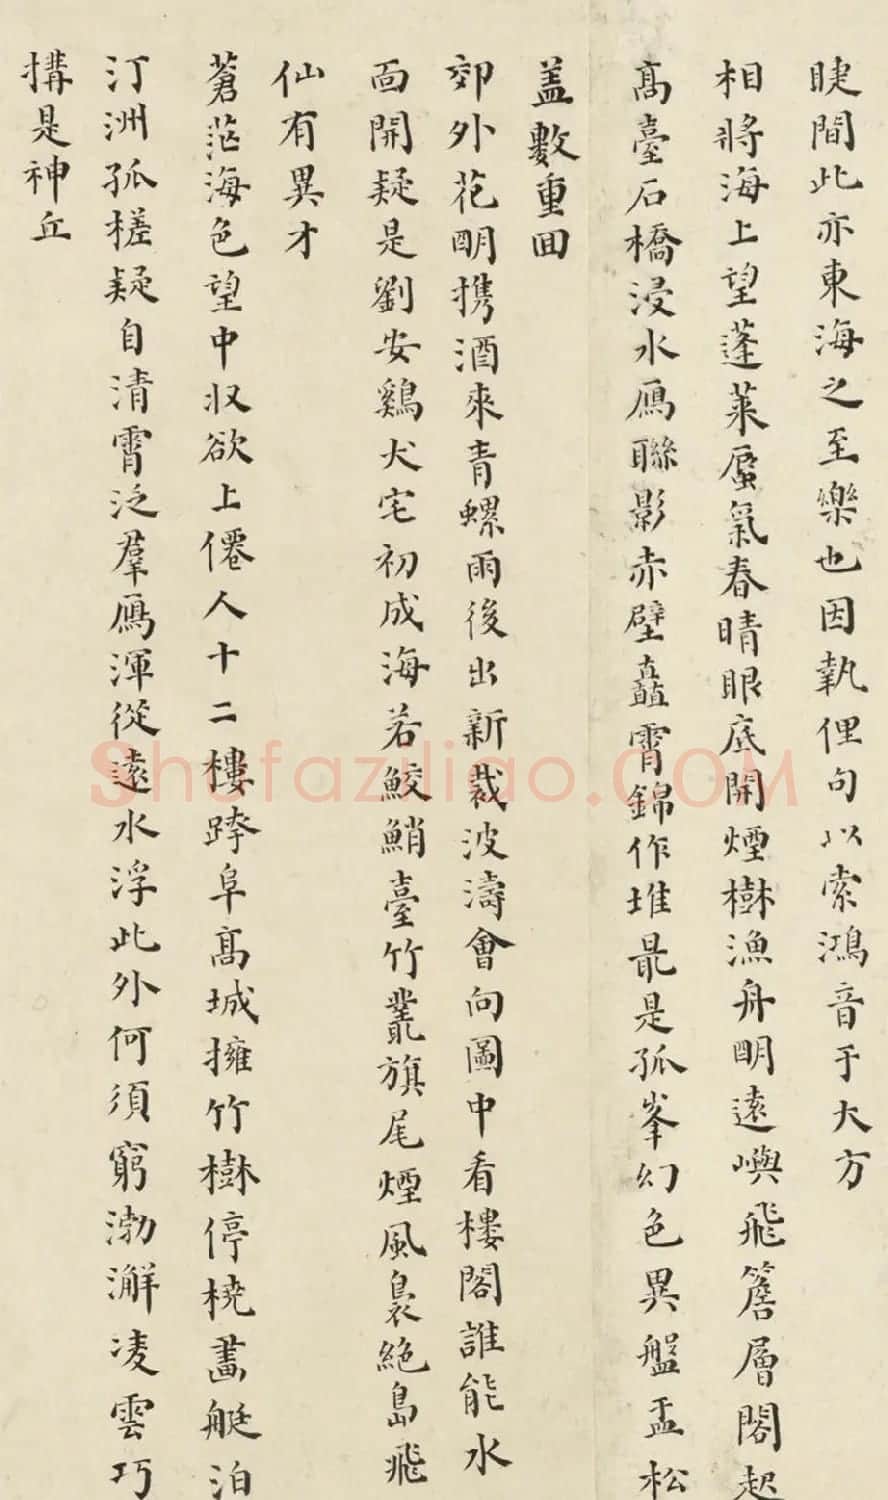 睫間此亦東海之至樂也因執俚句以索鴻音于大方
相將海上望蓬萊蜃氣春晴眼底開煙樹漁舟明遠嶼飛簷層閣起
高臺石橋浸水鴈聯影赤壁矗霄錦作堆最是孤峯幻色異盤盂松
盖數重回
郊外花明携酒來青螺雨後出新裁波濤會向圖中看樓閣誰能水
面開疑是劉安鷄犬宅初成海若鮫鮹臺竹叢旗尾煙風裊絕島飛
仙有異才
蒼茫海色望中收欲上僊人十二樓跨阜高城擁竹樹停橈畫艇泊
汀洲孤槎疑自清霄泛羣鴈渾從遠水浮此外何須窮渤澥凌雲巧
搆是神丘
Shufaziliao.COM